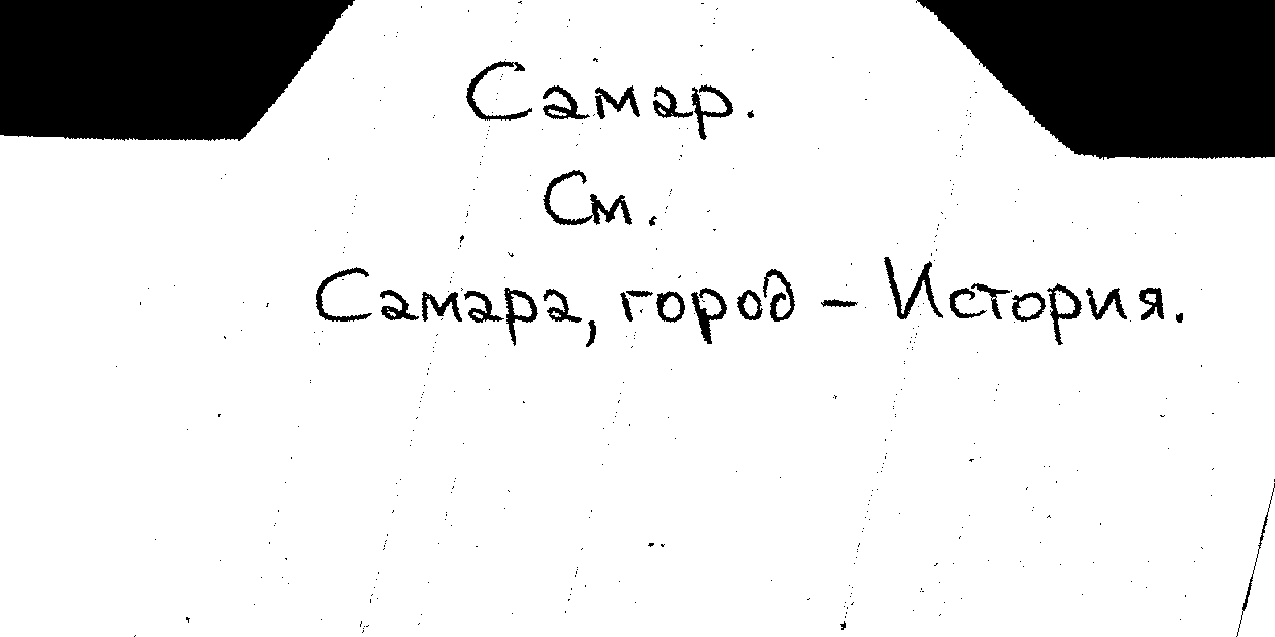 Самар.
См.
Самара, город – История.